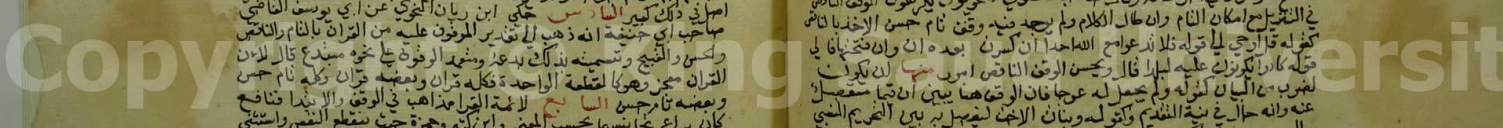 في التنزيل مع امكان التام وان طال الكلام ولم يوجد فيه وقف تام حسن الاخذ بالناقص
كقوله قل أوحي الى قوله فلا تدعوا مع الله احدا ان كسرت بعده ان وان فتحتها فالى
قوله كادوا يكونون عليه لبدا قال ويحسن الوقف الناقص امور منها ان يكون
لضرب من البيان كقوله ولم يجعل له عوجا فان الوقف هنا يبين ان قيما منفصل
عنه وانه حال في نية التقديم وكقوله وبنات الاخت ليفصل به بين التحريم النسبي
السادس حكى ابن برهان النحوي عن ابي يوسف القاضي
صاحب ابي حنيفة انه ذهب الى تقدير الموقوف عليه من القران بالتام والناقص
والحسن والقبيح وتسميته بذلك بدعة ومتعمد الوقوف على نحوه مبتدع قال لان
القران معجز وهو كالقطعة الواحدة فكله قران وبعضه قران وكله تام حسن
وبعضه تام حسن السابع لائمة القرا مذاهب في الوقف والابتدا فنافع
كان يراعي تجانسهما بحسب المعنى وابن كثير وحمزة حيث ينقطع النفس واستثنى